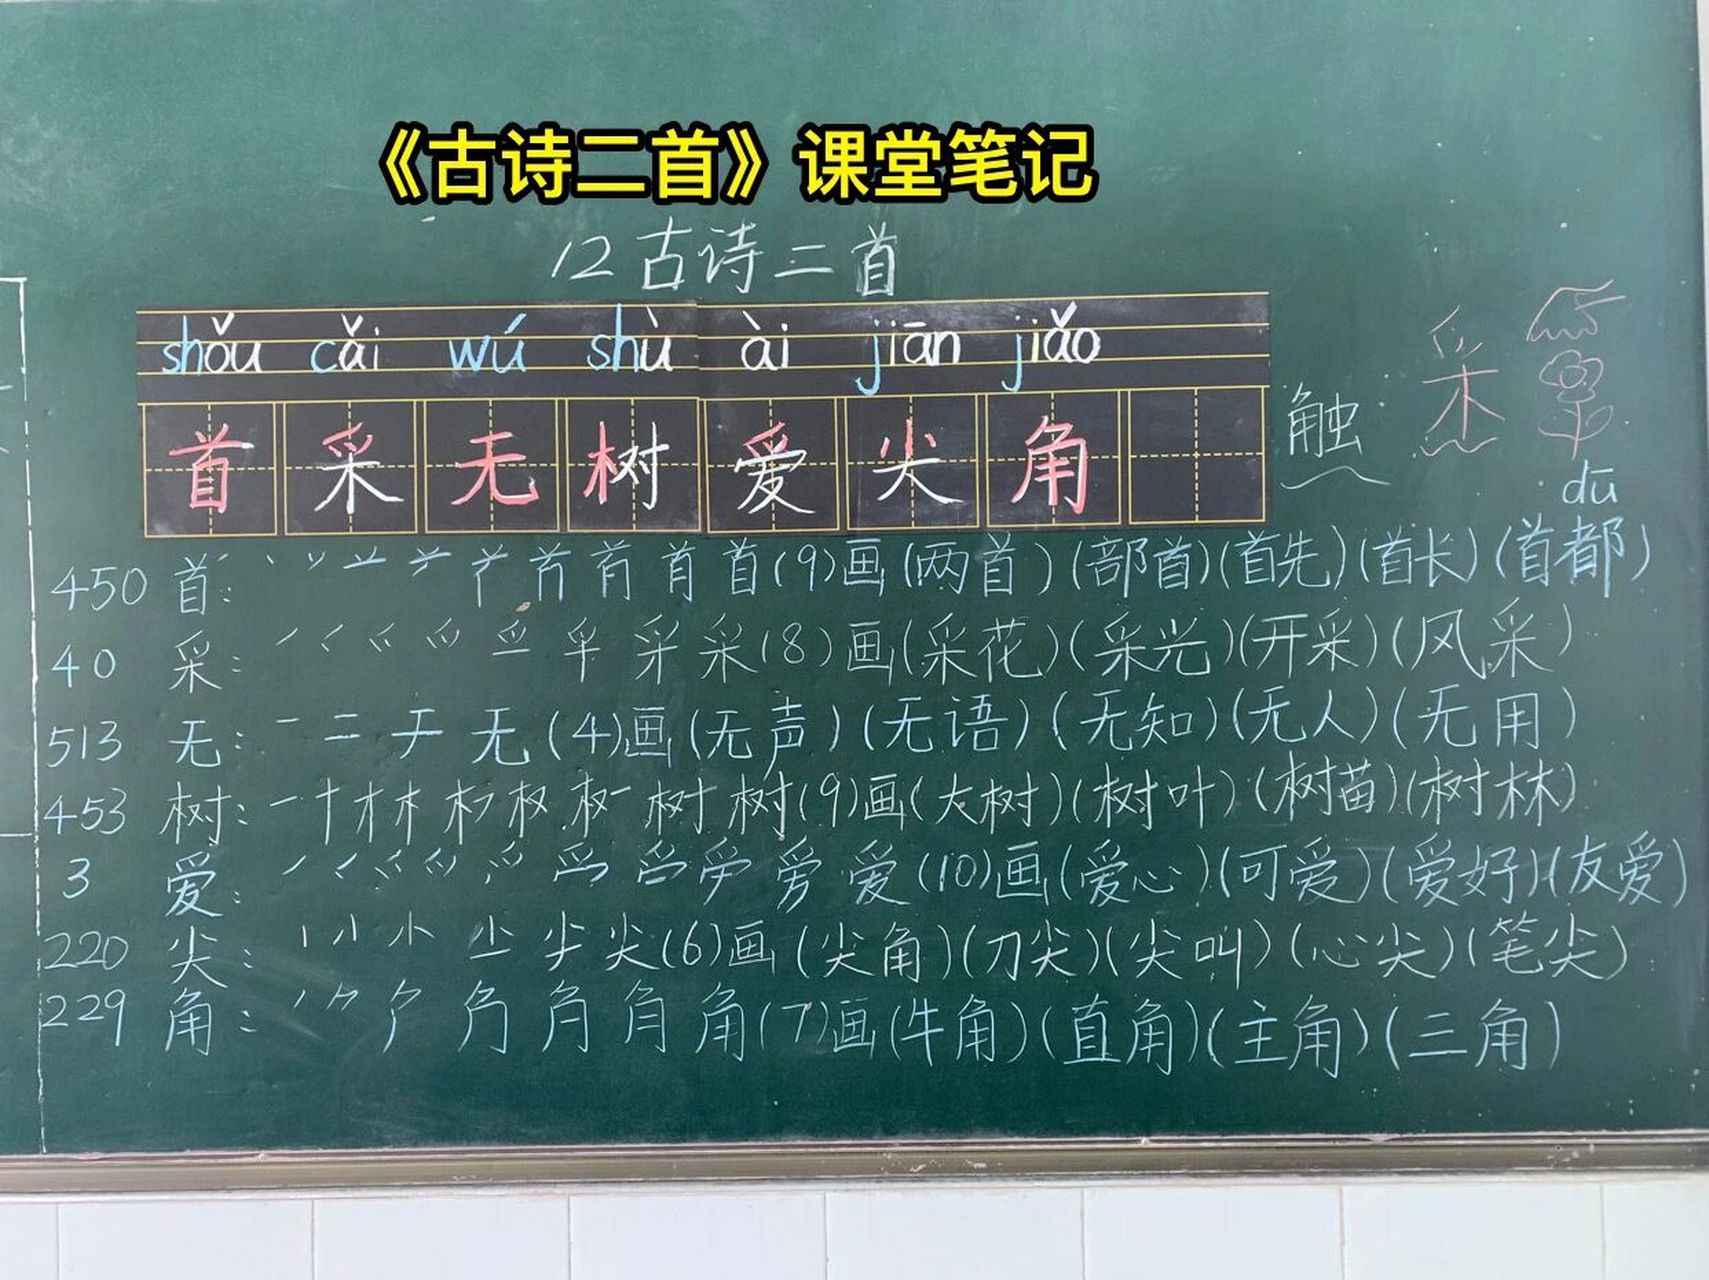 《古诗二首》课堂笔记
12古诗二首
shǒu cǎi wú shù ài jiān jiǎo
首 采 无 树 爱 尖 角 触 采
dū
450 首: 首(9)画(两首)(部首)(首先)(首长)(首都)
40 采: 采(8)画(采花)(采光)(开采)(风采)
513 无: 一 二 无(4)画(无声)(无语)(无知)(无人)(无用)
453 树: 一 十 才 木 权 权 树(9)画(大树)(树叶)(树苗)(树林)
3 爱: 爱(10)画(爱心)(可爱)(爱好)(友爱)
220 尖: 小 尖(6)画(尖角)(刀尖)(尖叫)(心尖)(笔尖)
229 角: 角(7)画(牛角)(直角)(主角)(三角)